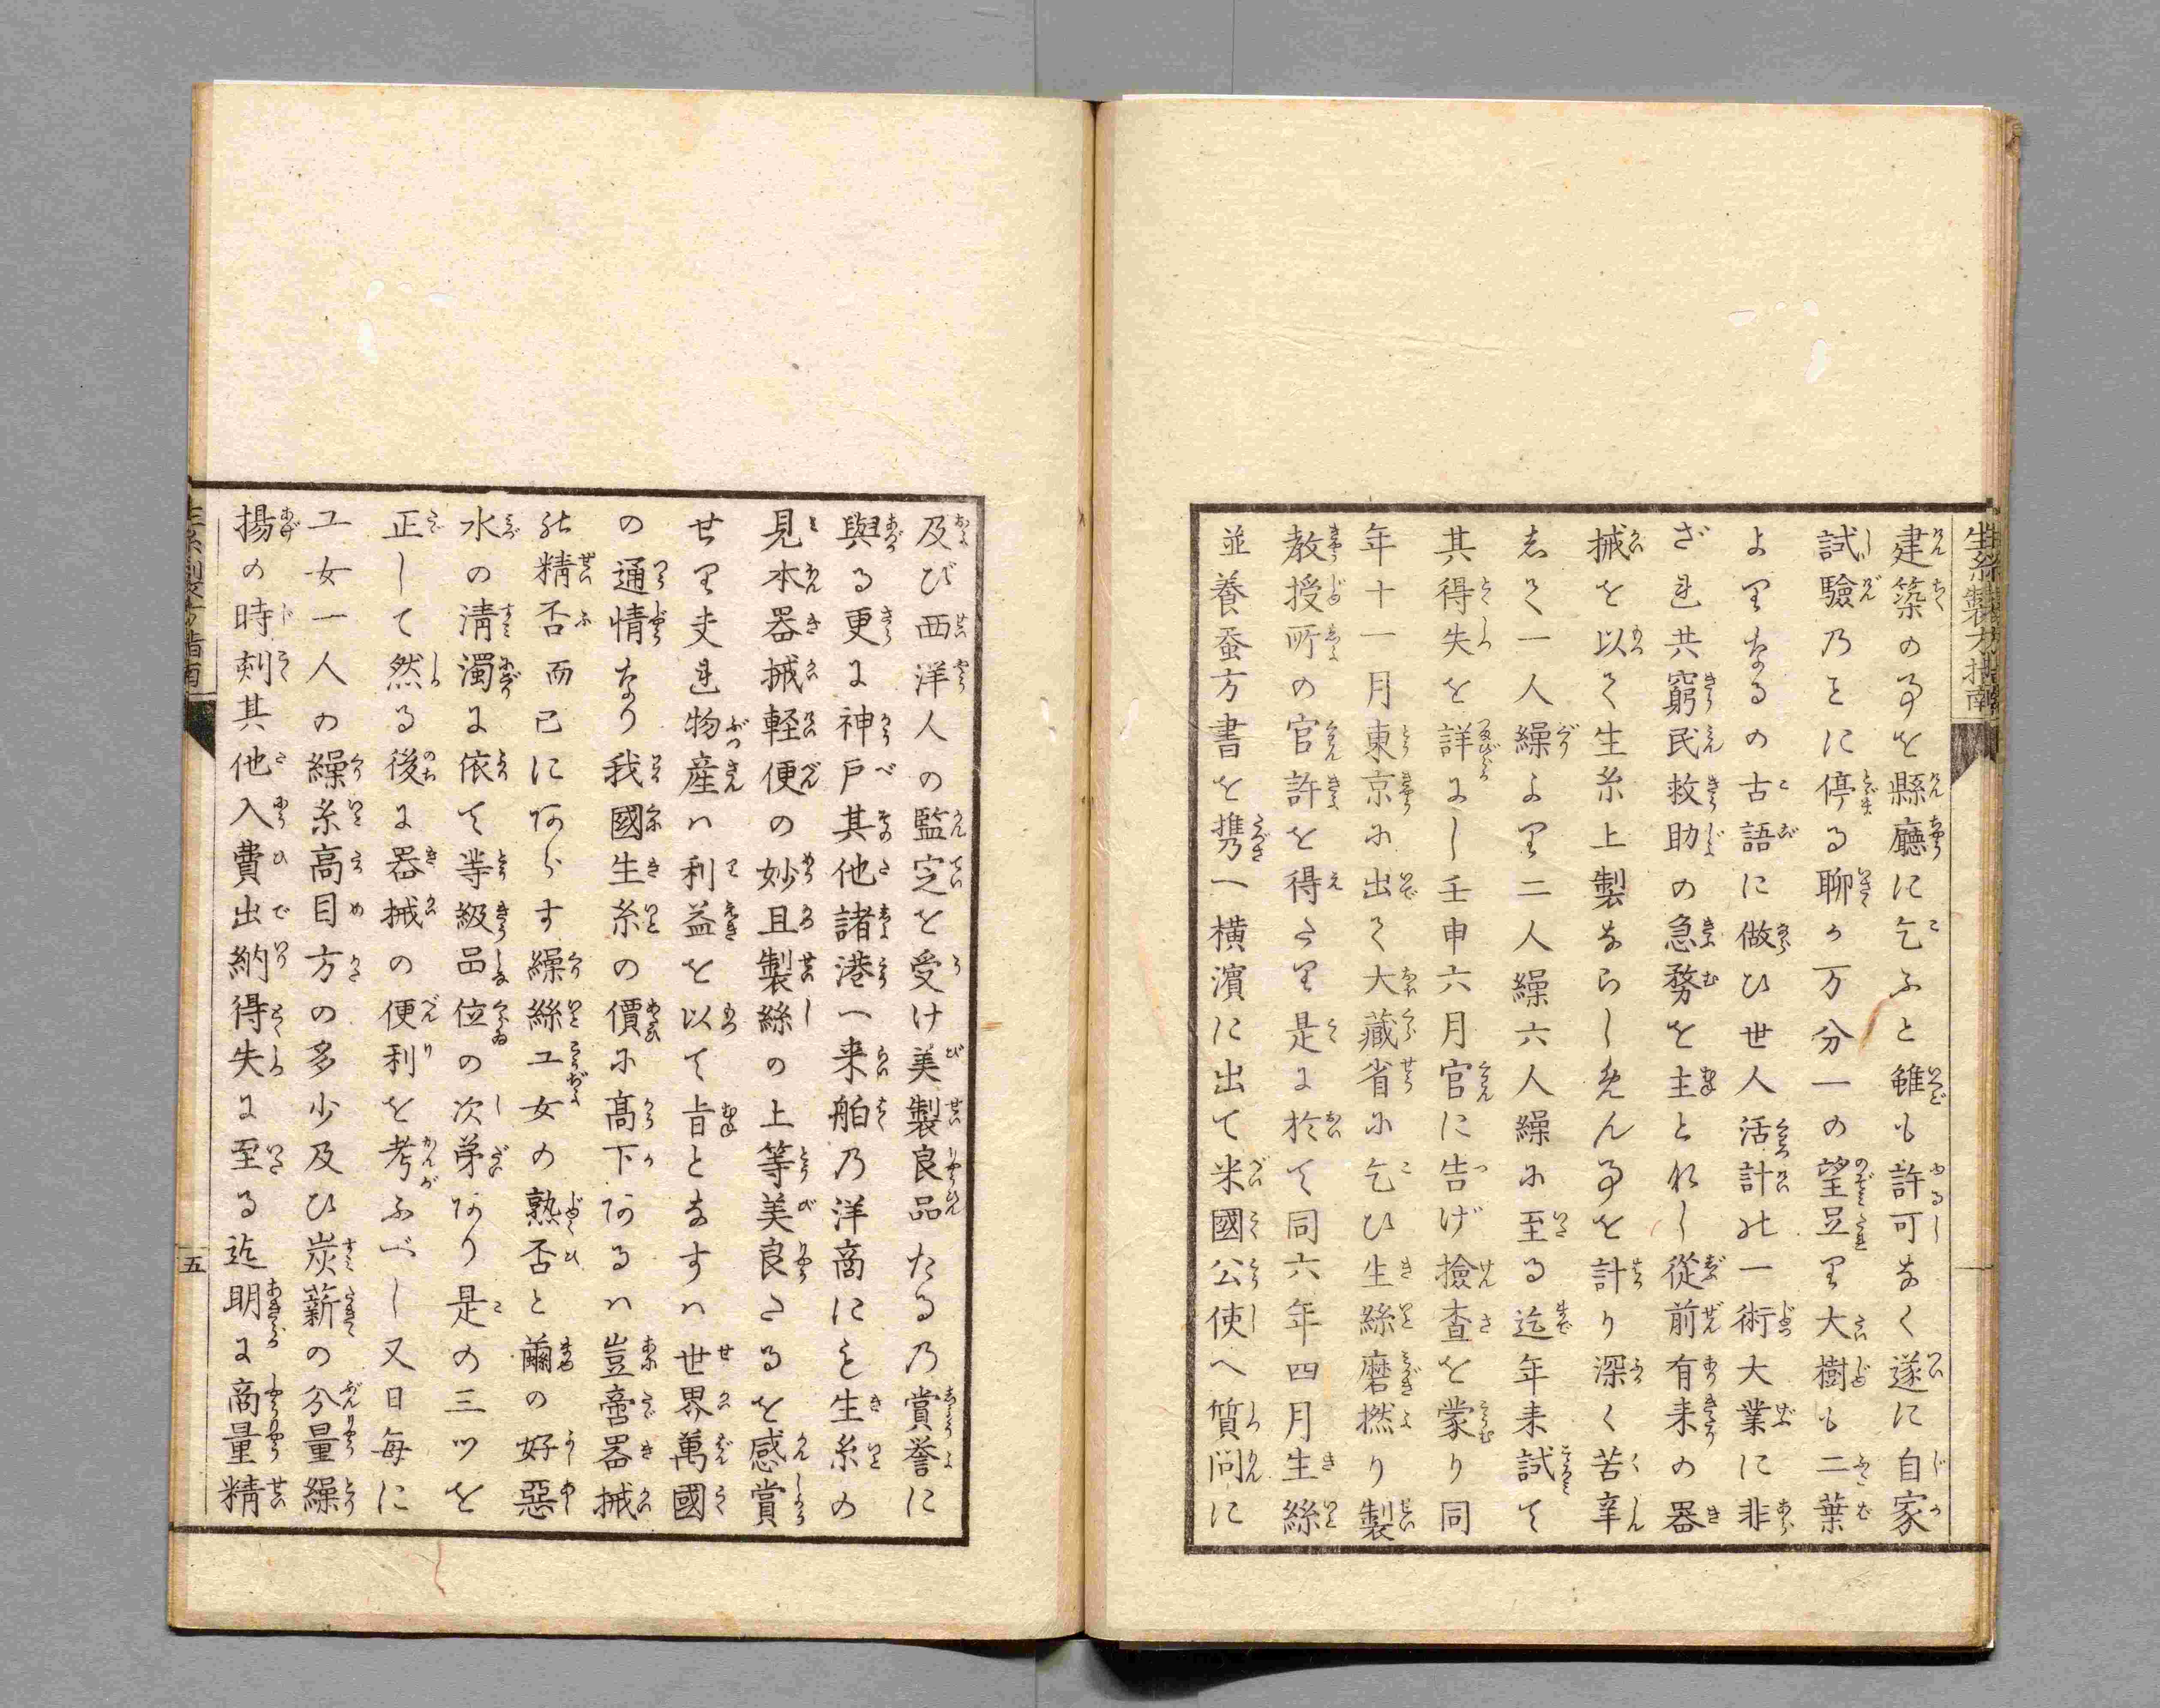 生絲製方指南
建築の事を縣廳に乞ふと雖も許可なく遂に自家
試驗乃みに停る聊か万分一の望足り大樹も二葉
よりなるの古語に做ひ世人活計の一術大業に非
ざれ共窮民救助の急務を主とれし從前有来の器
械を以て生糸上製ならしめん事を計り深く苦辛
志て一人繰より二人繰六人繰に至る迄年来試て
其得失を詳にし壬申六月官に告げ撿査を蒙り同
年十一月東京に出て大藏省に乞ひ生絲磨撚り製
教授所の官許を得たり是に於て同六年四月生絲
並養蚕方書を携一横濱に出て米國公使へ質問に
及び西洋人の監定を受け美製良品たる乃賞誉に
與る更に神戸其他諸港一来舶乃洋商にも生糸の
見本器械軽便の妙且製絲の上等美良たるを感賞
せり夫れ物産ハ利益を以て旨となすハ世界萬國
の通情なり我國生糸の價に高下あるハ豈啻器械
の精否而已にあらす繰絲工女の熟否と繭の好惡
水の清濁に依て等級品位の次第あり是の三ツを
正して然る後に器械の便利を考ふべし又日毎に
工女一人の繰糸高目方の多少及ひ炭薪の分量繰
揚の時刻其他入費出納得失に至る迄明に商量精
生糸製方指南
五